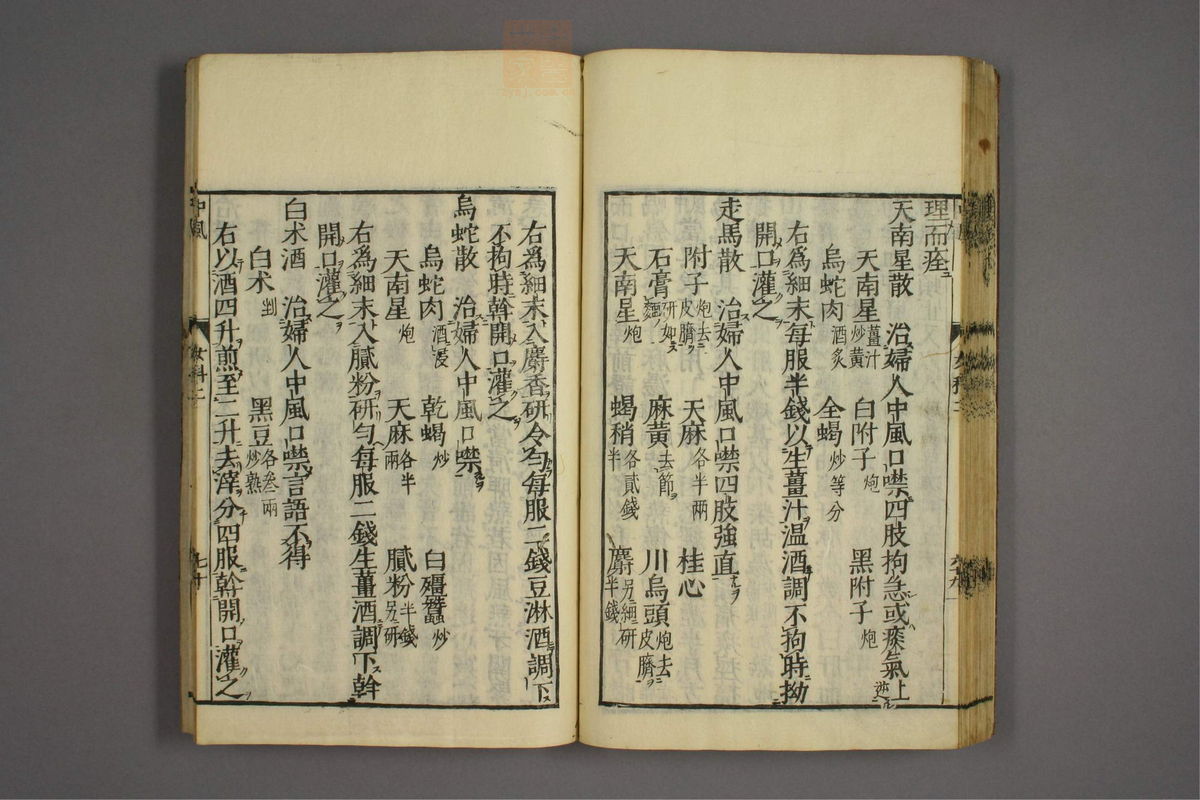 理而痊
天南星散　治婦人中風口噤四肢拘急或痰氣上逆
天南星薑汁炒黃　白附子炮　黑附子炮
烏蛇肉酒炙　全蝎炒等分
右爲細末每服半錢以生薑汁溫酒調不拘時拗
開口灌之
走馬散　治婦人中風口噤四肢強直
附子炮去皮臍　天麻各半兩　桂心
石膏研如麵　麻黃去節　川烏頭炮去皮臍
天南星炮　蝎稍各貳錢半　麝半錢另細研
右爲細末入麝香研令勻每服二錢豆淋酒調下
不拘時斡開口灌之
烏蛇散　治婦人中風口噤
烏蛇肉酒浸　乾蝎炒　白殭蠶炒
天南星炮　天麻各半兩　膩粉半錢另研
右爲細末入膩粉研勻每服二錢生薑酒調下斡
開口灌之
白术酒　治婦人中風口噤言語不得
白术剉　黑豆各叁兩炒熟
右以酒四升煎至二升去滓分四服斡開口灌之
中風
女科二
七十